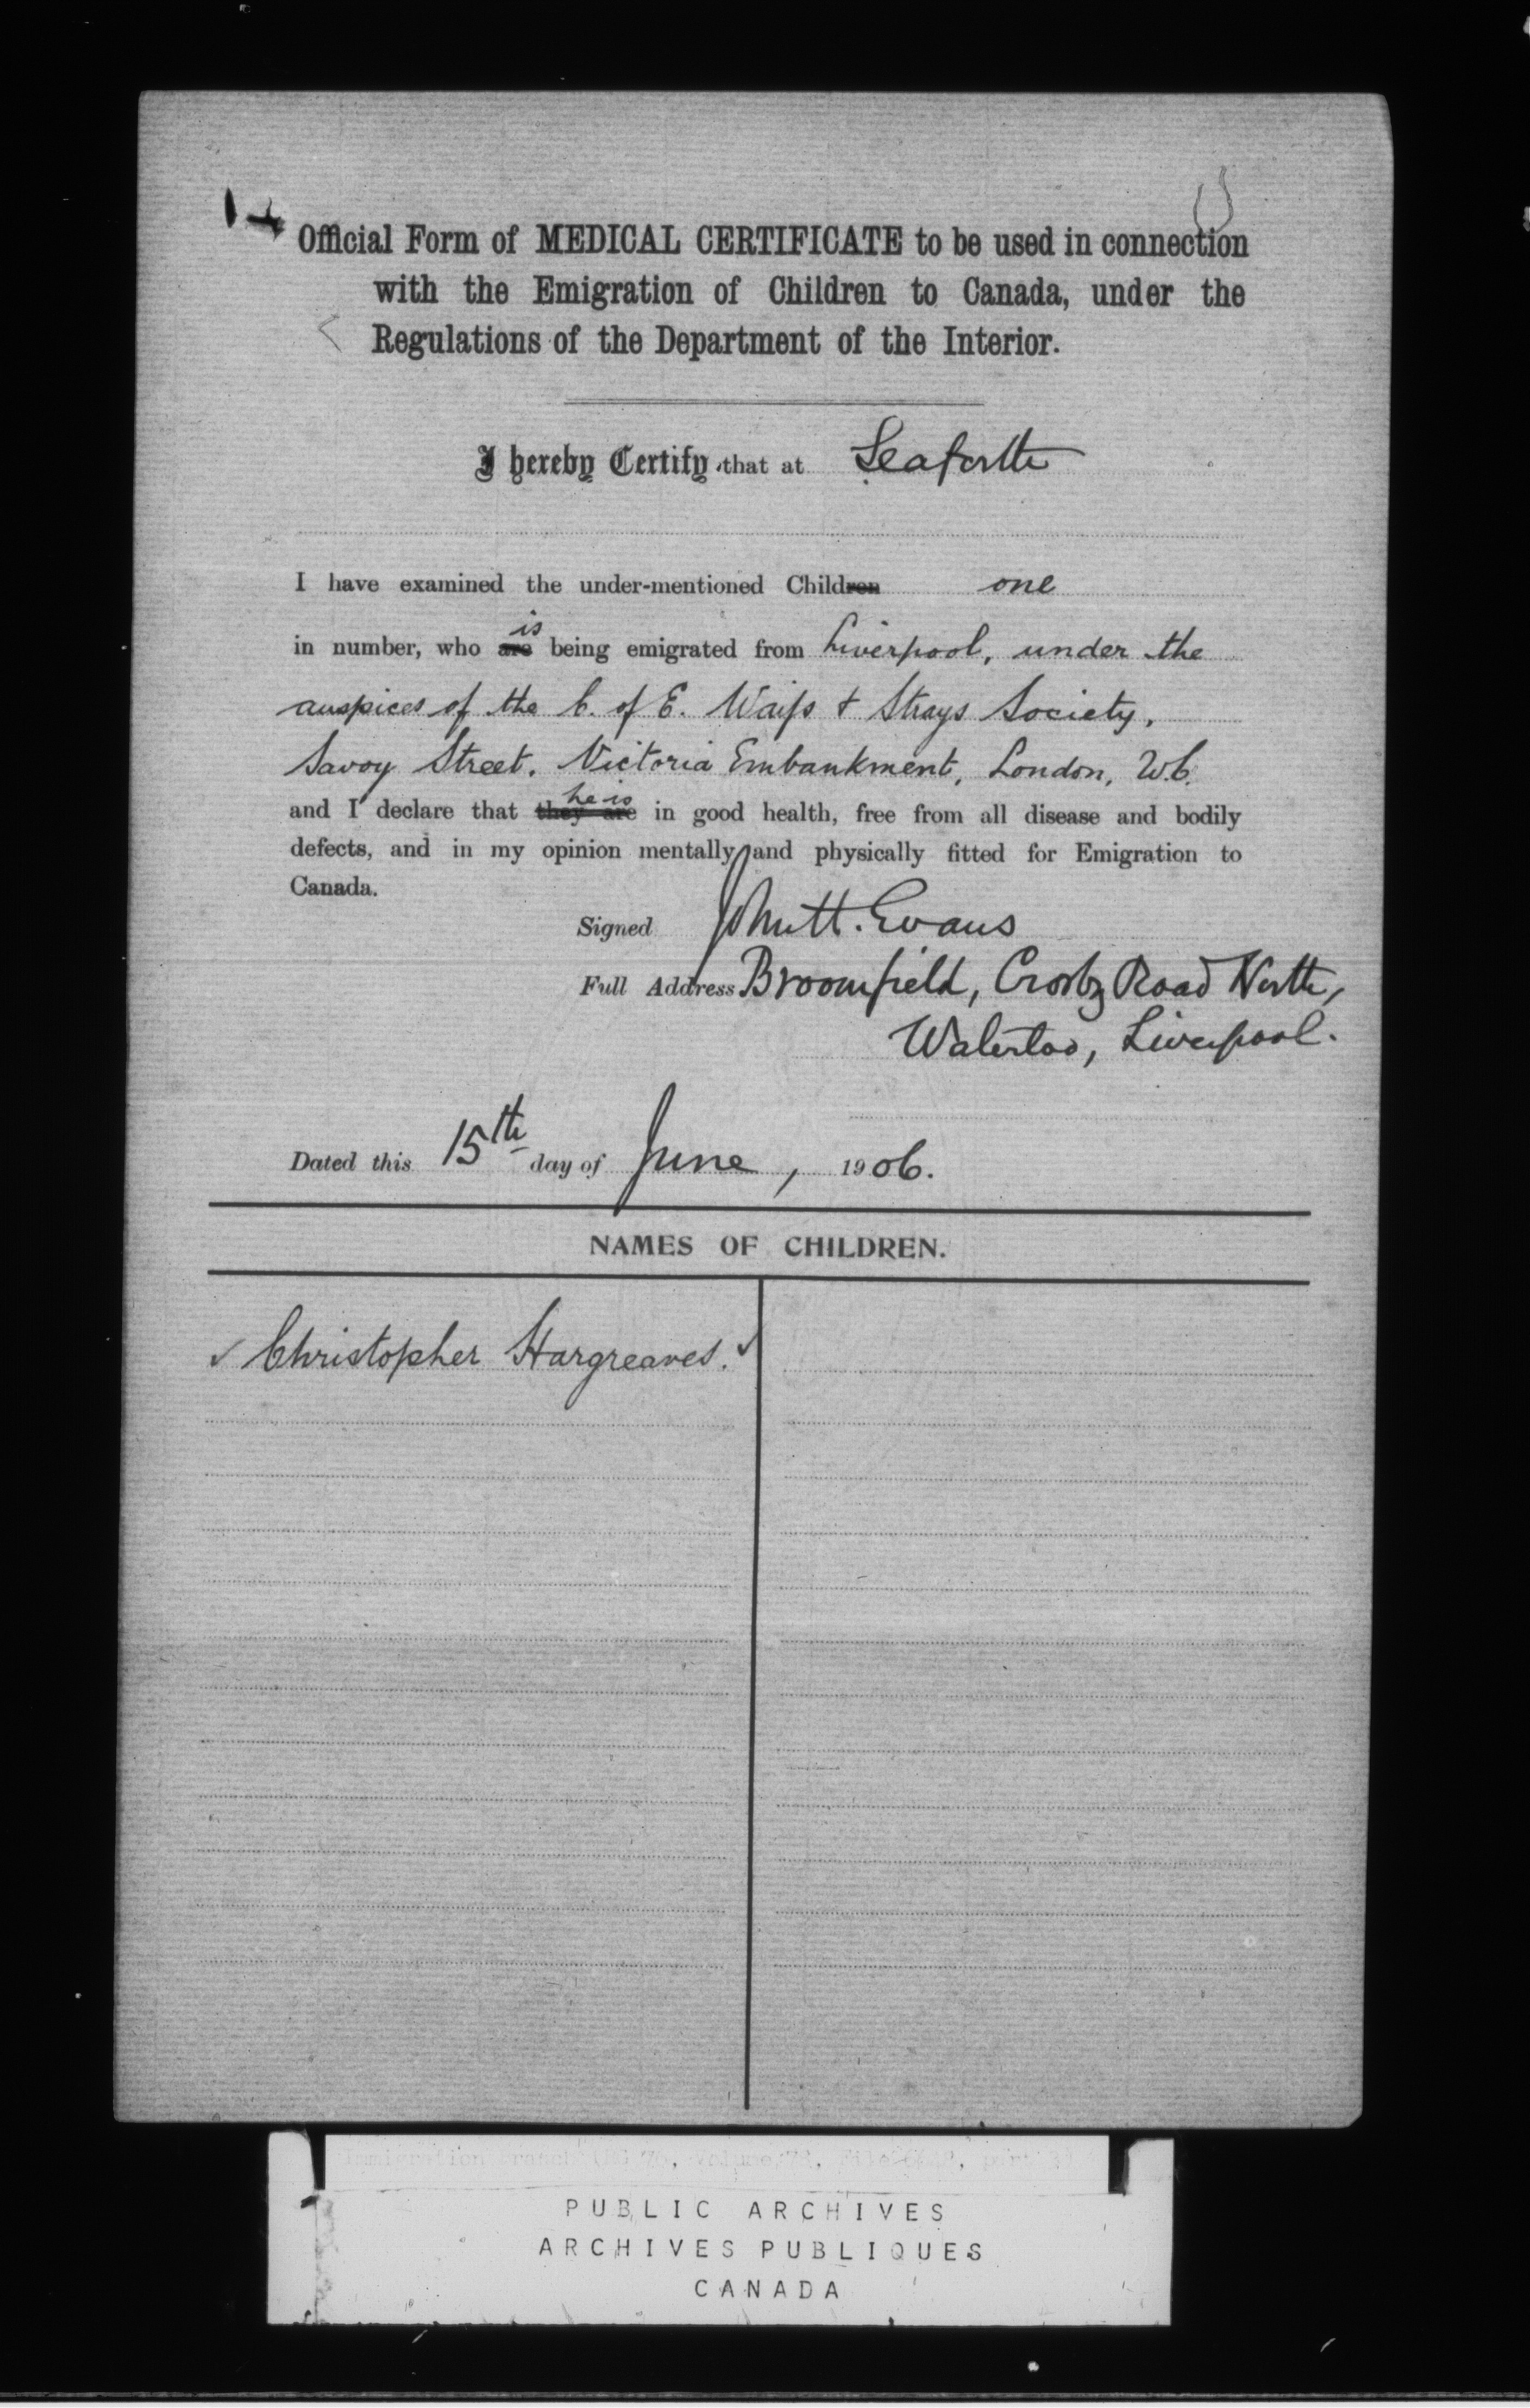 Official Form of MEDICAL CERTIFICATE to be used in connection
with the Emigration of Children to Canada, under the
Regulations of the Department of the Interior.
I hereby Certify that at Seaforth
I have examined the under-mentioned Children one
is
in number, who are being emigrated from Liverpool, under the
auspices of the C. of E. Waifs & Strays Society,
Savoy Street, Victoria Embankment, London, W.C.
he is
and I declare that they are in good health, free from all disease and bodily
defects, and in my opinion mentally and physically fitted for Emigration to
Canada.
Signed John H. Evans
Full Address Broomfield, Crosby Road North,
Waterloo, Liverpool.
Dated this 15th day of June, 1906.
NAMES OF CHILDREN.
✓ Christopher Hargreaves. ✓
PUBLIC ARCHIVES
ARCHIVES PUBLIQUES
CANADA